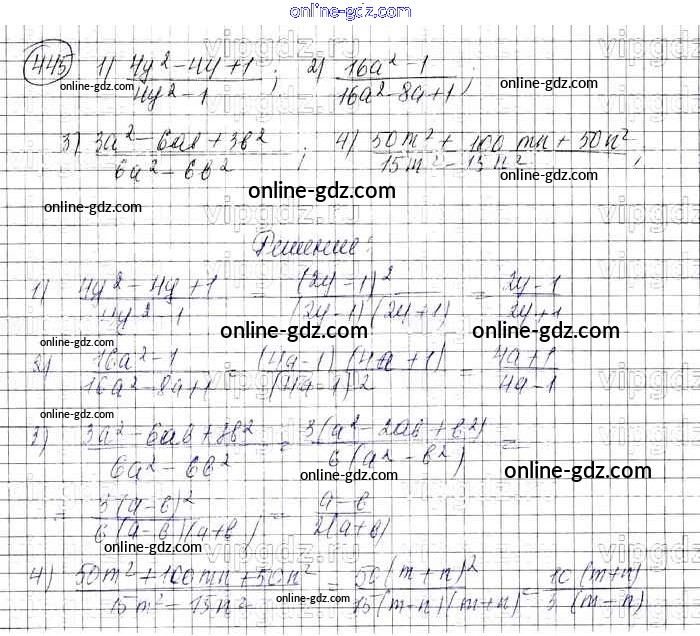 online-gdz.com
445 1) (4y² - 4y + 1)/(4y² - 1); 2) (16a² - 1)/(16a² - 8a + 1);
online-gdz.com online-gdz.com
3) (3a² - 6ab + 3b²)/(6a² - 6b²); 4) (50m² + 100mn + 50n²)/(15m² - 15n²);
online-gdz.com online-gdz.com online-gdz.com
Решение:
1) (4y² - 4y + 1)/(4y² - 1) = (2y - 1)²/((2y - 1)(2y + 1)) = (2y - 1)/(2y + 1)
online-gdz.com online-gdz.com online-gdz.com
2) (16a² - 1)/(16a² - 8a + 1) = (4a - 1)(4a + 1)/(4a - 1)² = (4a + 1)/(4a - 1)
online-gdz.com
3) (3a² - 6ab + 3b²)/(6a² - 6b²) = 3(a² - 2ab + b²)/(6(a² - b²)) =
online-gdz.com online-gdz.com
= 3(a - b)²/(6(a - b)(a + b)) = (a - b)/(2(a + b))
online-gdz.com
4) (50m² + 100mn + 50n²)/(15m² - 15n²) = 50(m + n)²/(15(m - n)(m + n)) = 10(m + n)/(3(m - n))
online-gdz.com online-gdz.com